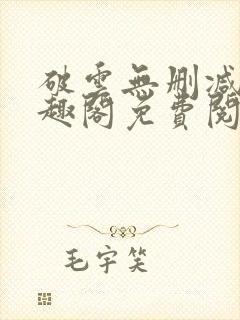 破雲無刪減
趣閣免費閱
毛宇笑